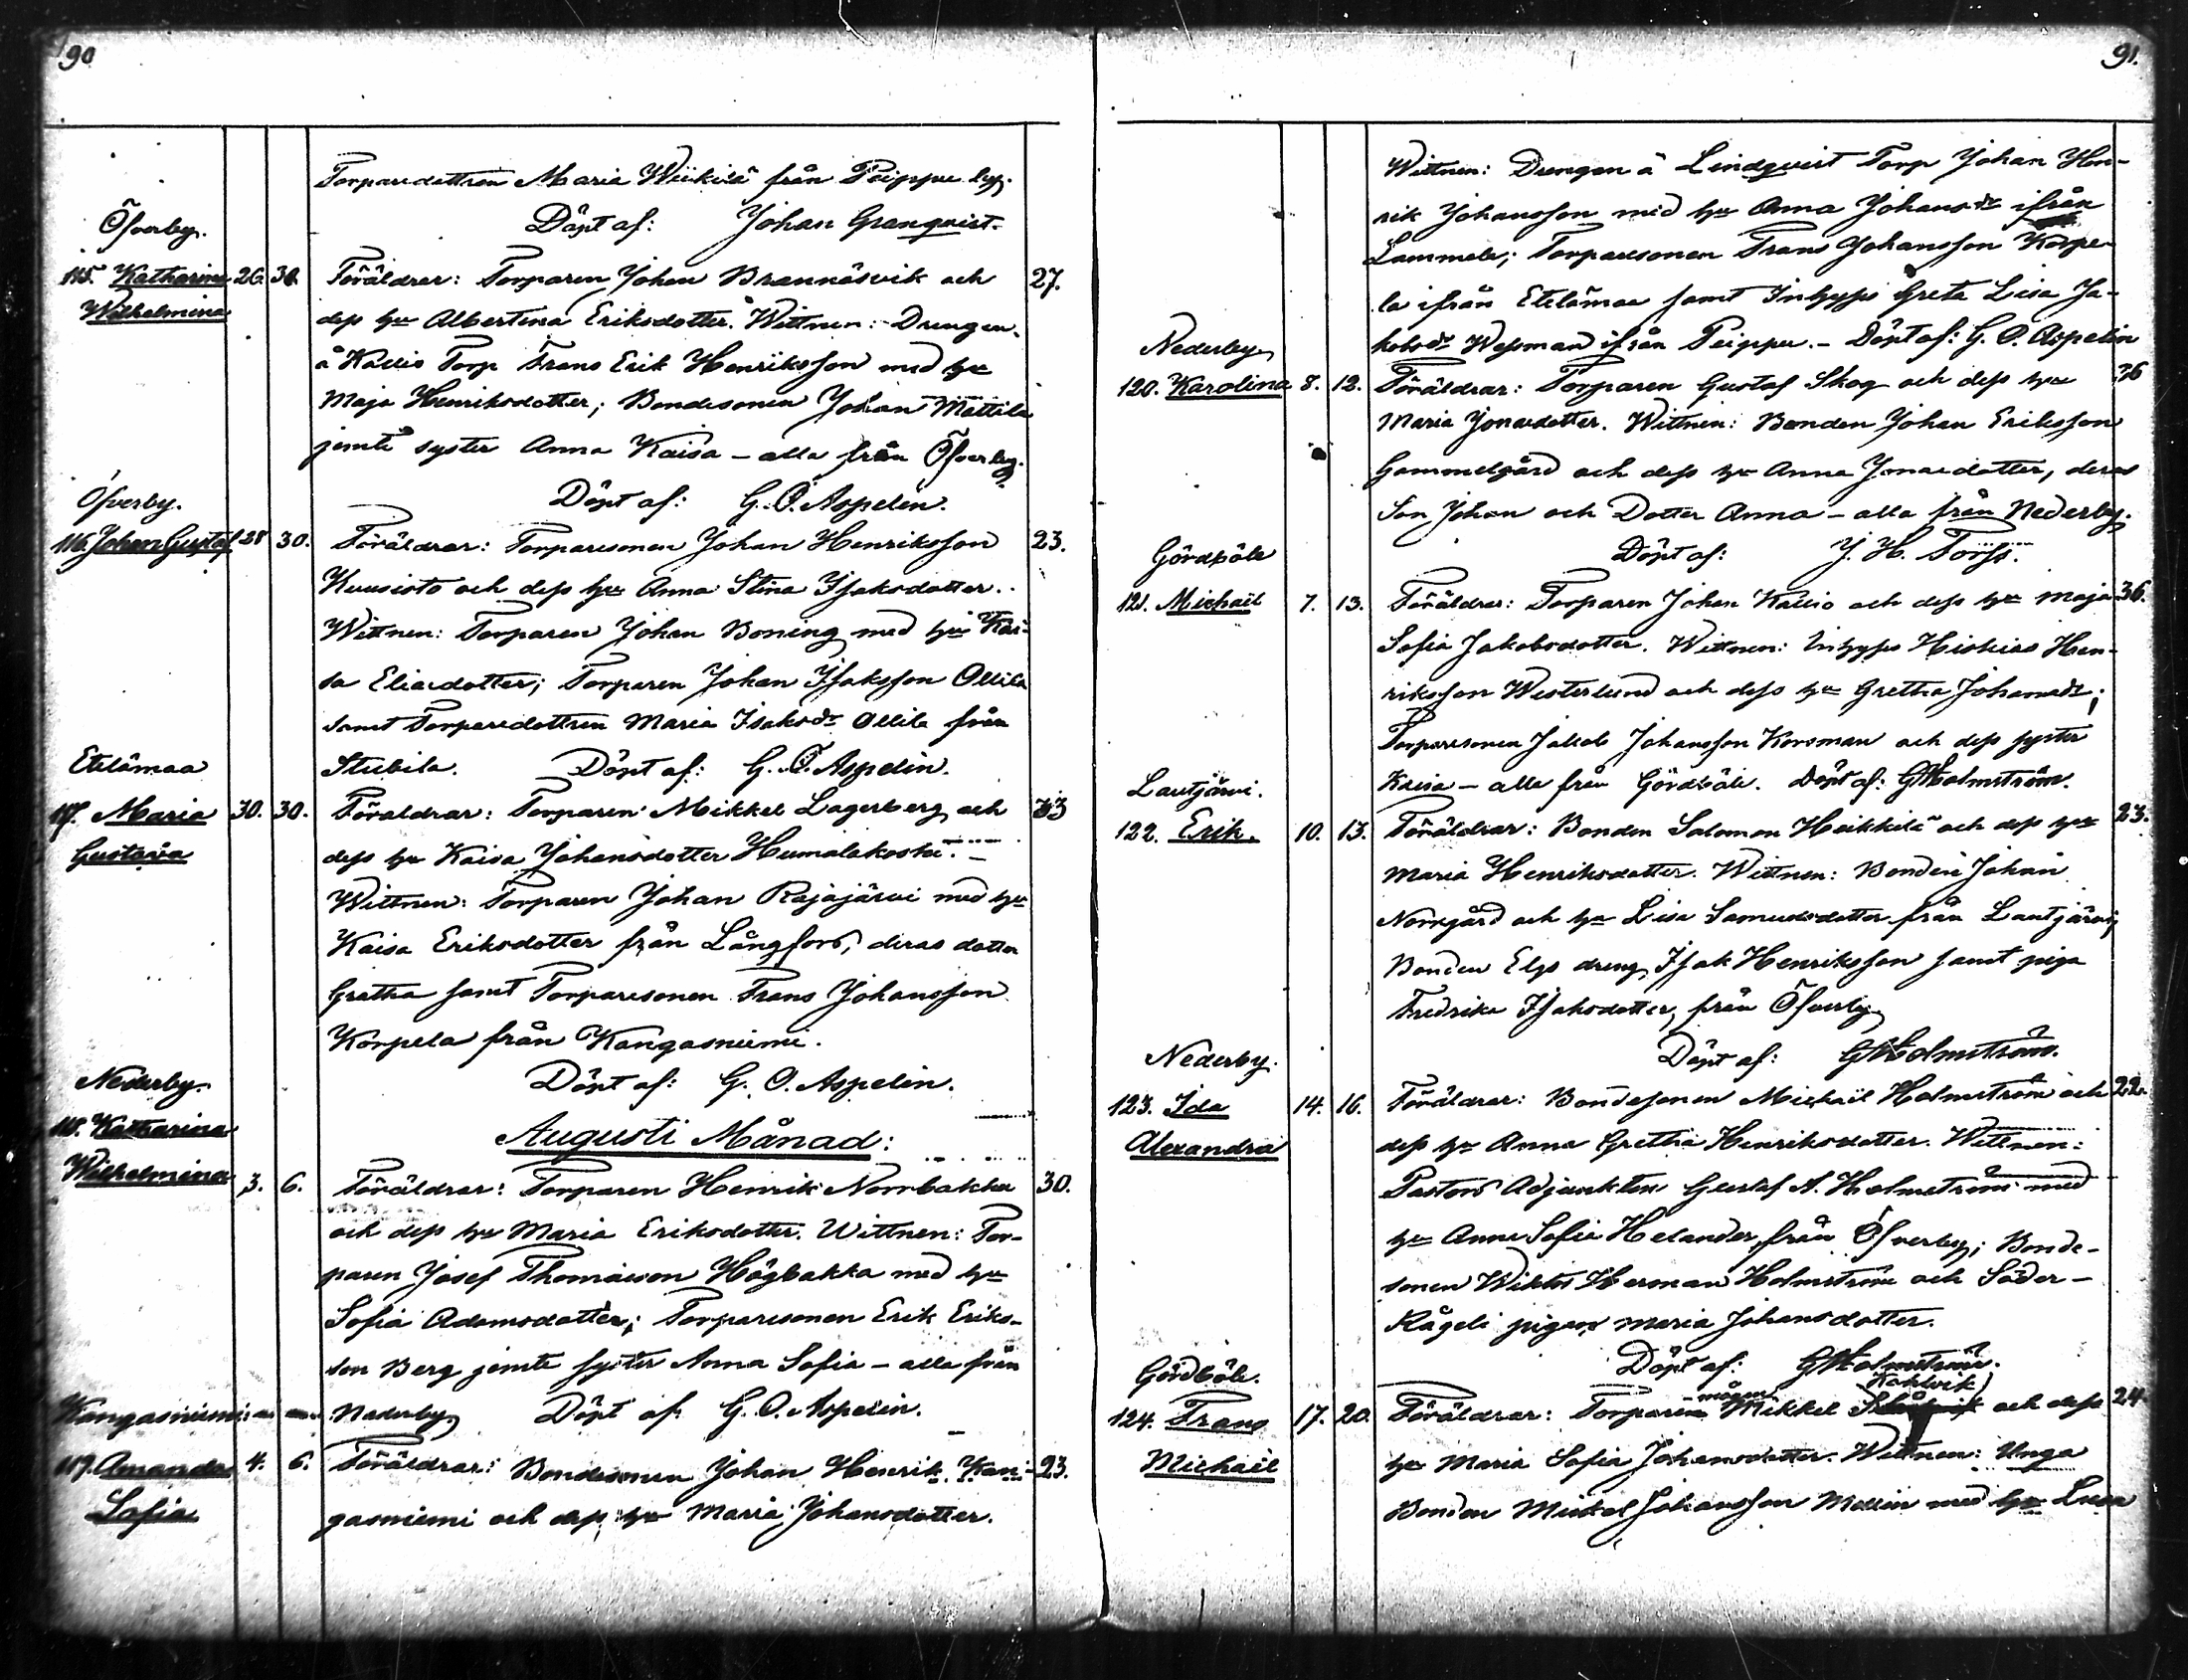 90
Torparedottren Maria Wiikilä från Peippu by.
Döpt af: Johan Granqvist.
Öfverby.
115. Katharina 26. 30. Föräldrar: Torparen Johan Brannäsvik och 27.
Wilhelmina dess hu Albertina Eriksdotter. Wittnen: Drengen
å Kallio Torp Frans Erik Henriksson med hu
Maja Henriksdotter; Bondesonen Johan Mattila
jemte syster Anna Kaisa – alla från Öfverby.
Döpt af: G. O. Aspelin.
Öfverby.
116. Johan Gustaf 28 30. Föräldrar: Torparesonen Johan Henriksson 23.
Kuusisto och dess hu Anna Stina Isaksdotter.
Wittnen: Torparen Johan Boning med hu Kai-
sa Eliaedotter; Torparen Johan Isaksson Ollila
samt Torparedottren Maria Isaksdr Ollila från
Stubila. Döpt af: G. O. Aspelin.
Etelämaa
117. Maria 30. 30. Föräldrar: Torparen Mikkel Lagerberg och 33
Gustava dess hu Kaisa Johansdotter Humalakoski. –
Wittnen: Torparen Johan Rajajärvi med hu
Kaisa Eriksdotter från Långfors, deras dotter
Gretha samt Torparesonen Frans Johansson
Korpela från Kangasniemi.
Döpt af: G. O. Aspelin.
Augusti Månad:
Nederby.
118. Katharina
Wilhelmina 3. 6. Föräldrar: Torparen Henrik Norrbakka 30.
och dess hu Maria Eriksdotter. Wittnen: Tor-
paren Josef Thomasson Högbakka med hu
Sofia Adamsdotter; Torparesonen Erik Eriks-
son Berg jemte syster Anna Sofia – alla från
Nederby Döpt af G. O. Aspelin.
Kangasniemi
119. Amanda 4. 6. Föräldrar: Bondesonen Johan Henrik Kan- 23.
Sofia gasniemi och dess hu Maria Johansdotter.
91.
Wittnen: Drengen å Lindqvist Torp Johan Hen-
rik Johansson med hu Anna Johansdr ifrån
Lammela; Torparesonen Frans Johansson Korpe-
la ifrån Etelämaa samt Inhyses Greta Lisa Ja-
kobsdr Wessman ifrån Peippu. – Döpt af: G. O. Aspelin
Nederby
120. Karolina 8. 12. Föräldrar: Torparen Gustaf Skog och dess hu 36
Maria Jonaedotter. Wittnen: Bonden Johan Eriksson
Gammelgård och dess hu Anna Jonaedotter, deras
Son Johan och Dotter Anna – alla från Nederby.
Döpt af: J. H. Torss.
Gördböle
121. Michaël 7. 13. Föräldrar: Torparen Johan Kallio och dess hu Maja 36.
Sofia Jakobsdotter. Wittnen: Inhyses Hiskias Hen-
riksson Westerlund och dess hu Gretha Johansdr;
Torparesonen Jakob Johansson Korsman och dess syster
Kaisa – alla från Gördböle. Döpt af: GAHolmström.
Lautjärvi.
122. Erik. 10. 13. Föräldrar: Bonden Salomon Heikkilä och dess hu 23.
Maria Henriksdotter. Wittnen: Bonden Johan
Norrgård och hu Lisa Samuelsdotter från Lautjärvi;
Bonden Elgs dreng Isak Henriksson samt piga
Fredrika Isaksdotter, från Öfverby
Döpt af: GAHolmström.
Nederby.
123. Ida 14. 16. Föräldrar: Bondesonen Michaël Holmström och 22.
Alexandra dess hu Anna Gretha Henriksdotter. Wittnen:
Pastors Adjunkten Gustaf A. Holmström med
hu Anna Sofia Helander, från Öfverby; Bonde-
sonen Wiktor Herman Holmström och Söder-
Klågeli pigan Maria Johansdotter.
Döpt af: GAHolmström.
Gördböle.
124. Frans 17. 20. Föräldrar: Torparen mågen Mikkel Kohlvik och dess 24.
Michaël hu Maria Sofia Johansdotter. Wittnen: Unga
Bonden Mickel Johansson Mellin med hu Lusa